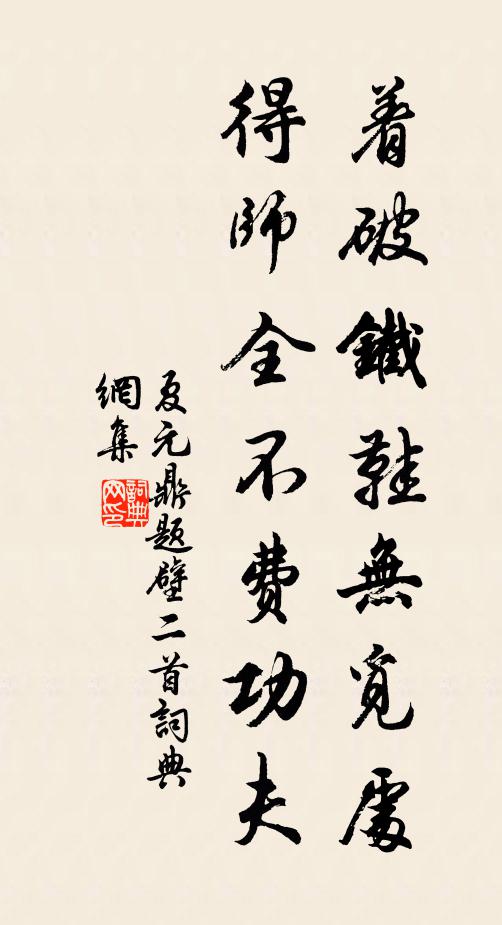 着破鐵鞋無覓處
得師全不費功夫
夏元鼎题壁二首詞典
網集
詞典
网印